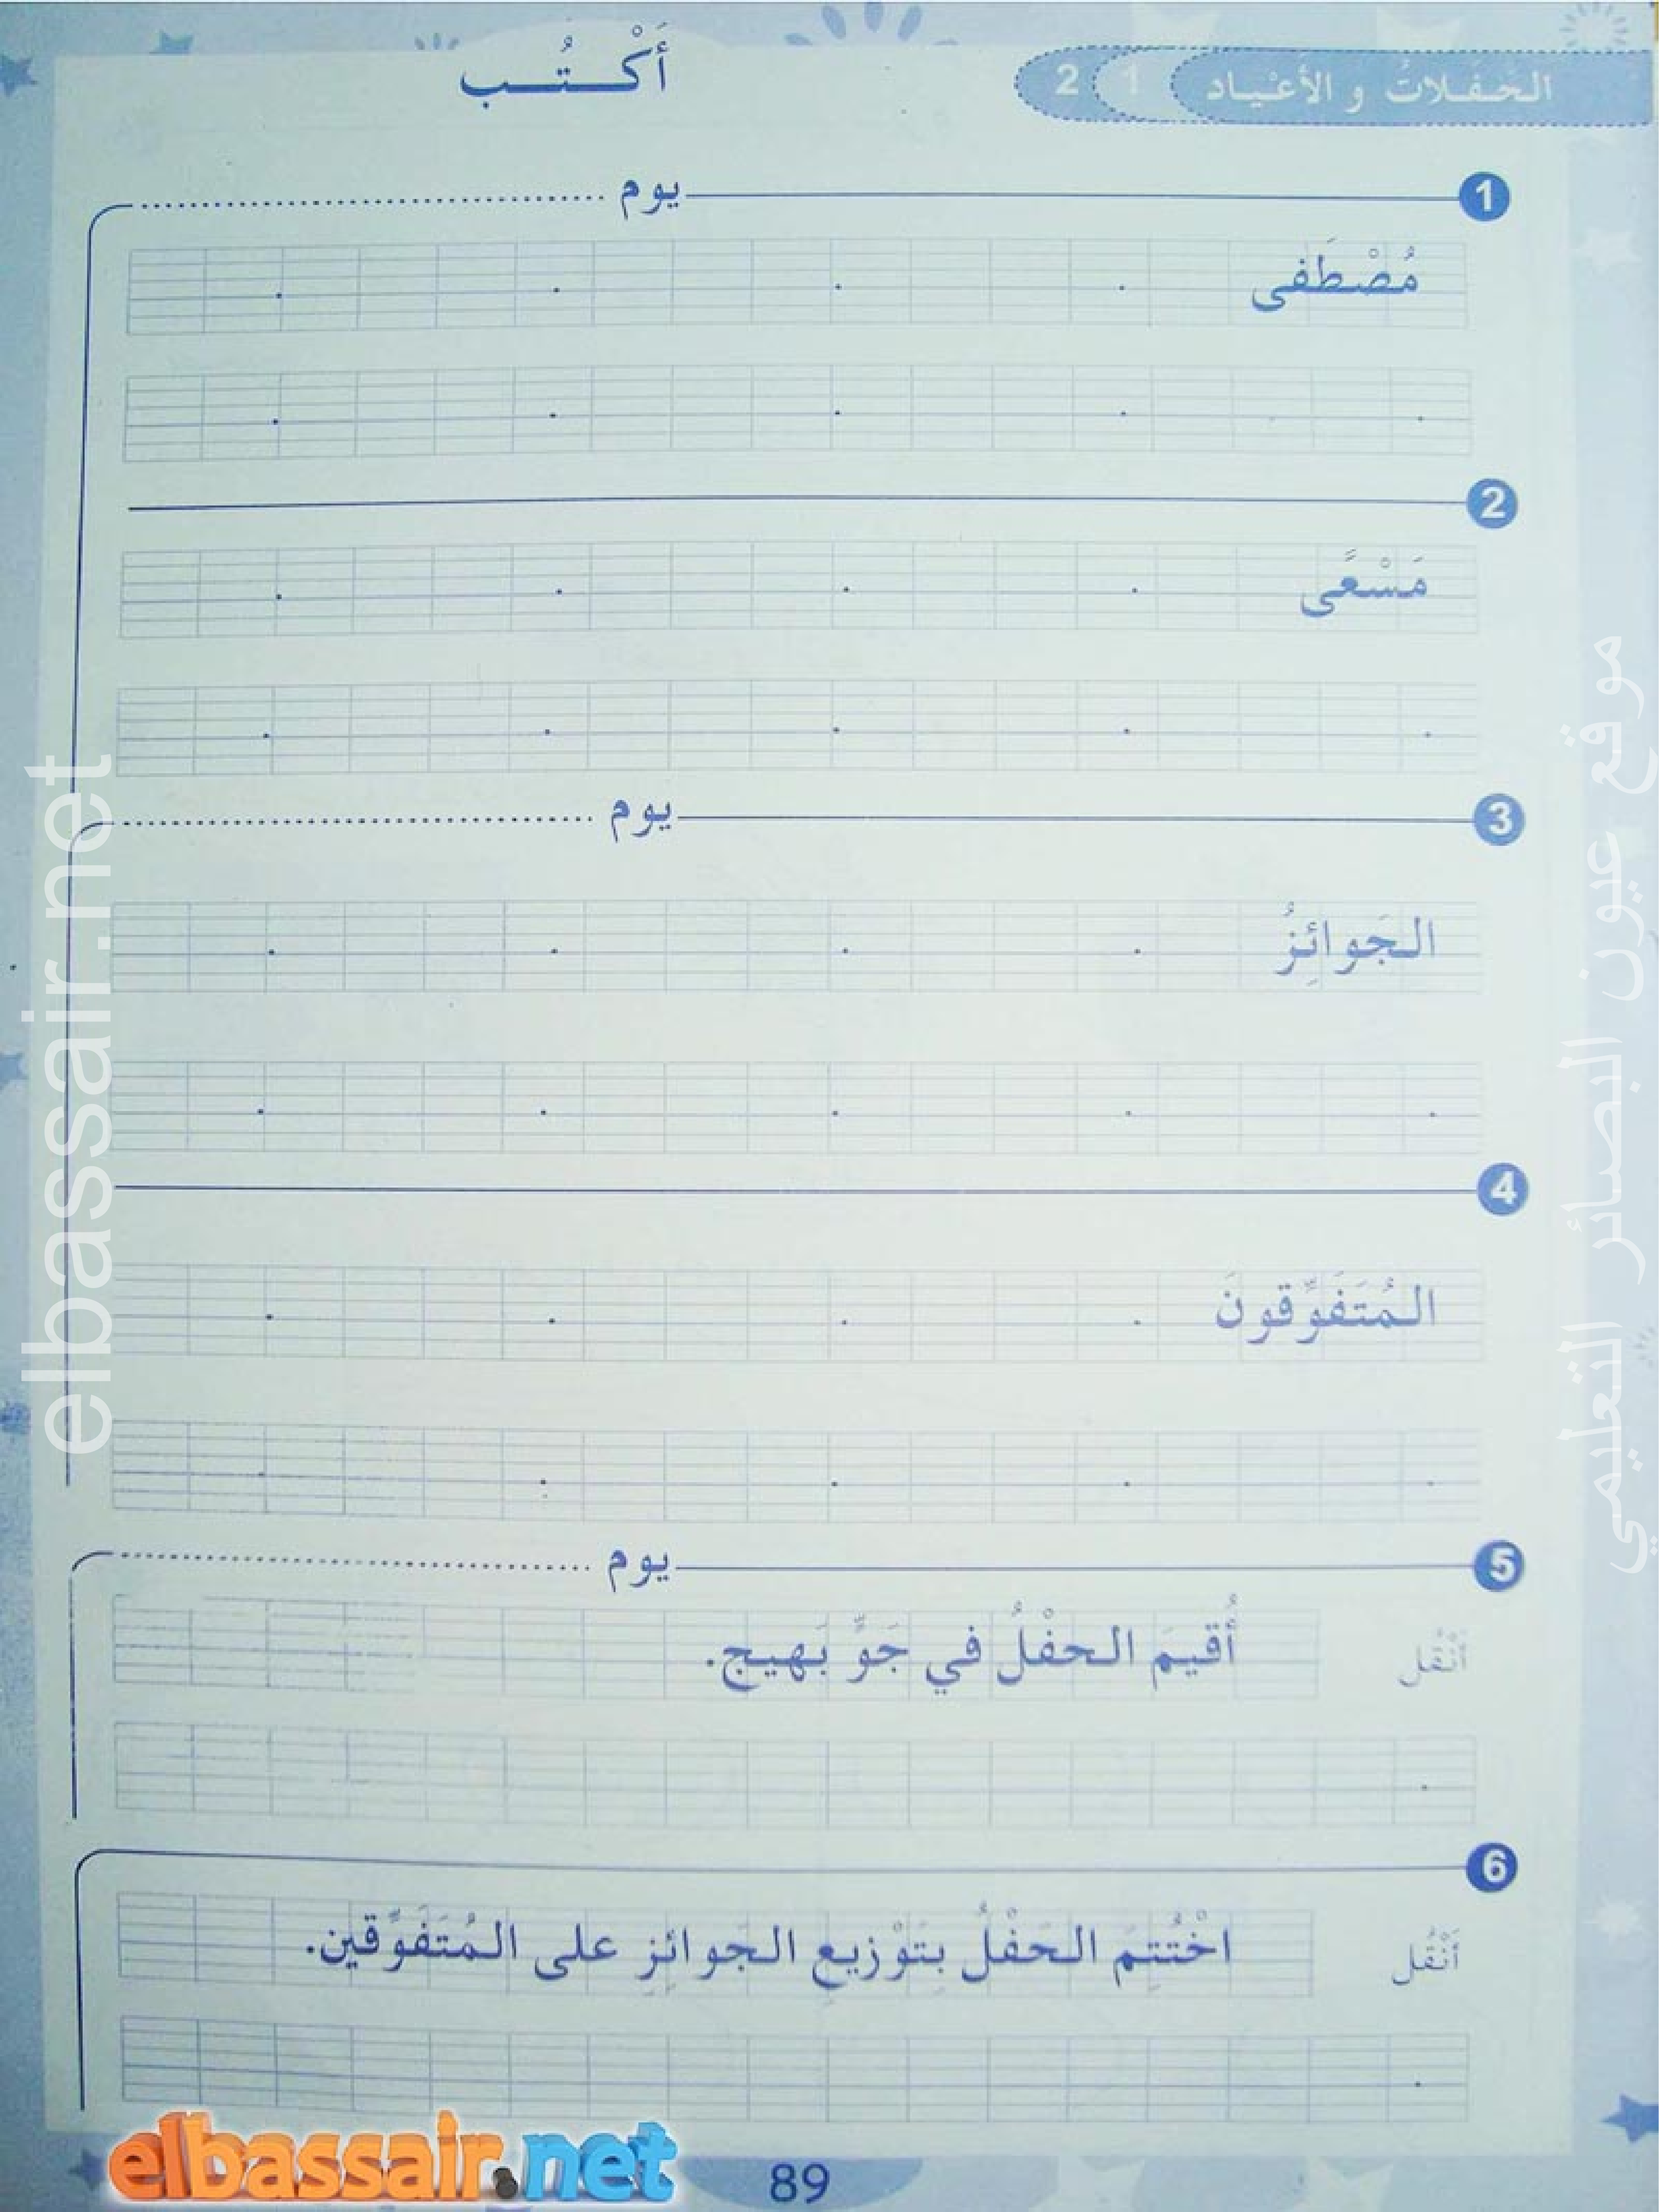 الحَفَلاتُ و الأعْياد 1 2
أَكْتُب
1 يوم
مُصْطَفى
2
مَسْعًى
3 يوم
الجَوائِزُ
4
المُتَفَوِّقونَ
5 يوم
أَنْقُل أُقيمَ الحفْلُ في جَوٍّ بَهيج.
6
أَنْقُل اخْتُتِمَ الحَفْلُ بِتَوْزيعِ الجَوائِزِ على المُتَفَوِّقين.
89
elbassair.net
elbassair.net
موقع عيون البصائر التعليمي